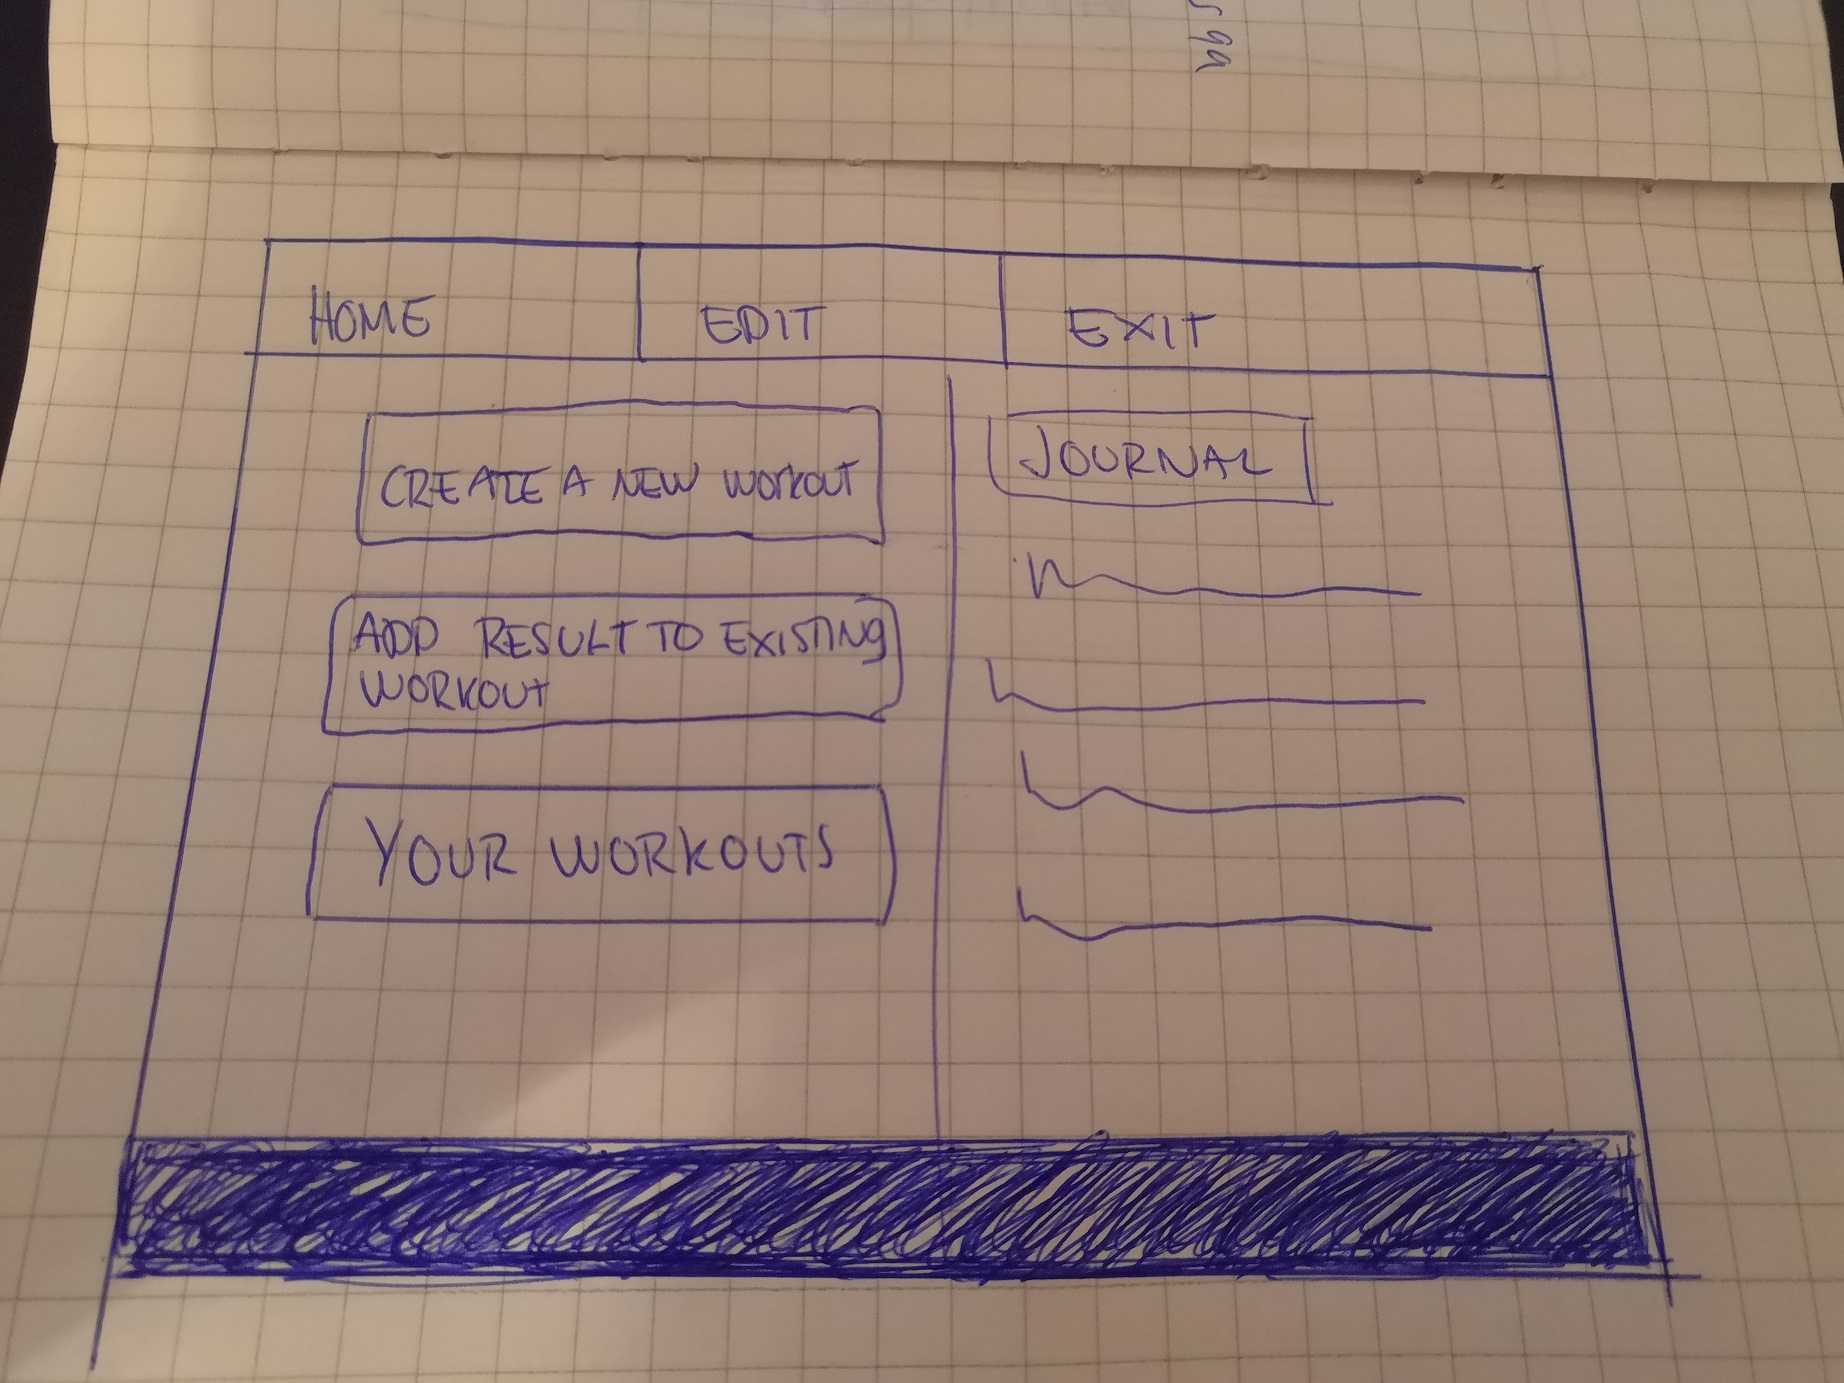 HOME
EDIT
EXIT
CREATE A NEW WORKOUT
ADD RESULT TO EXISTING
WORKOUT
YOUR WORKOUTS
JOURNAL